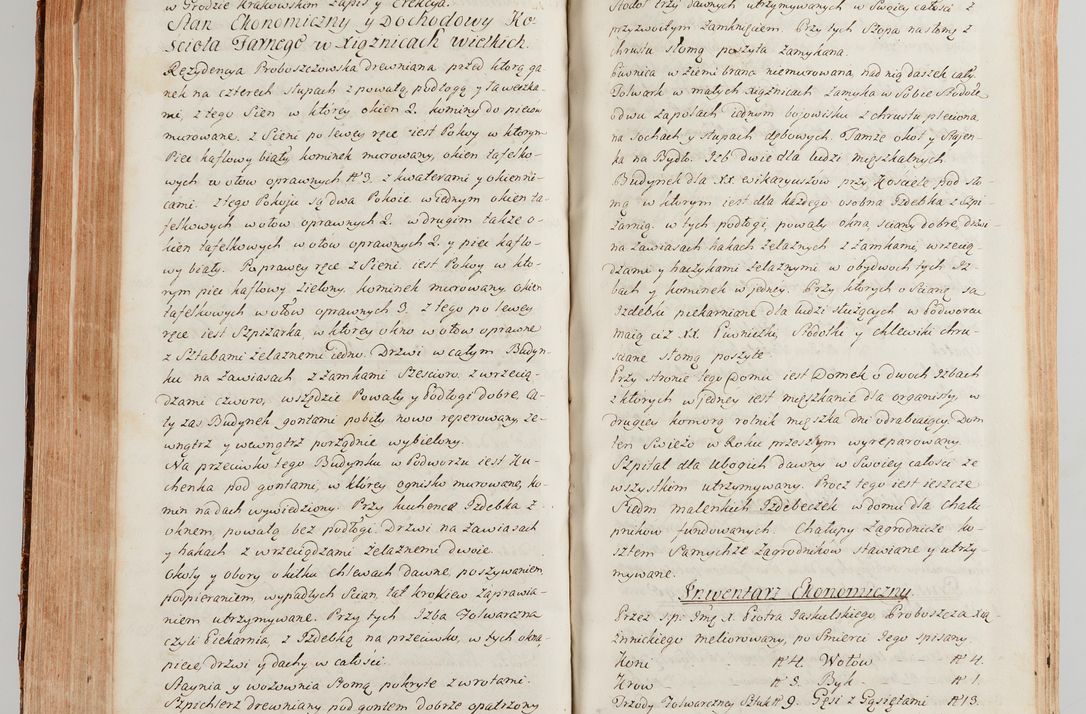 w Grodzie Krakowskim Zapis y Erekcya.
Stan Ekonomiczny y Dochodowy Ko-
scioła Farnego w Xiąznicach wielkich.
Rezydencya Proboszczowska drewniana przed ktorą ga
nek na czterech słupach z powałą, podłogą y ławeczka-
mi, z tego Sien w ktorey okien 2. kominy do piecow
murowane, z Sieni po lewey ręce iest Pokoy w ktorym
Piec kaflowy biały kominek murowany, okien tafelko-
wych w ołow oprawnych N 3. z kwaterami y okienni-
cami. z tego Pokoju są dwa Pokoie w iednym okien ta-
felkowych w ołow oprawnych 2. w drugim także o-
kien tafelkowych w ołow oprawnych 2. y piec kaflo-
wy biały. Po prawey ręce z Sieni iest Pokoy w kto-
rym piec kaflowy zielony, kominek murowany okien
tafelkowych w ołow oprawnych 3. z tego po lewey
ręce iest Szpizarka, w ktorey okno w ołow oprawne
z Sztabami żelaznemi iedno. Drzwi w całym Budyn-
ku na zawiasach z zamkami Sześcioro, z wrzecią-
dzami czworo, wszędzie Powały y Podłogi dobre. Ca-
ły zas Budynek gontami pobity nowo reperowany, ze-
wnątrz y wewnątrz porządnie wybielony.
Na przeciwko tego Budynku w Podworzu iest Ku-
chenka pod gontami, w ktorey ognisko murowane, ko-
min nadach wywiedziony. Przy kuchence Izdebka z
oknem, powałą bez podłogi. Drzwi na zawiasach
y hakach z wrzeciądzami żelaznemi dwoie.
Okoły y obory o kilku chlewach dawne, poszywaniem,
podpieraniem, wypadłych Scian, łat krokiew zaprawia-
niem utrzymywane. Przy tych Izba Folwarczna
czyli Piekarnia, z Izdebką na przeciwko, w tych okna,
piece, drzwi y dachy w całości.
Staynia y wozownia Słomą pokryte z wrotami.
Szpichlerz drewniany pod gontem dobrze opatrzony
Stodoł trzy dawnych utrzymywanych w Swoiey całości z
przyzwoitym zamknięciem. Przy tych Szopa na słomę z
chrustu słomą poszyta zamykana.
Piwnica w ziemi brana niemurowana, nad nią daszek cały
Folwark w małych Xiąznicach zamyka w Sobie Stodołę
o dwu zapolach iednym boiowisku z chrustu pleciona
na Sochach y słupach dębowych. Tamże okoł y Stajen-
ka na Bydło. Izb dwie dla ludzi mięszkalnych.
Budynek dla XX. Wikaryuszow przy Kościele pod sło-
mą w ktorym iest dla każdego osobna Izdebka z Szpi-
żarnią. w tych podłogi, powały okna, sciany dobre, drzwi
na zawiasach hakach żelaznych z zamkami, wrzecią-
dzami y haczykami żelaznymi w obydwoch tych Iz-
bach y kominek w jedney. Przy ktorych o Scianę są
Izdebki piekarniane dla ludzi służących w Podworzu
maią ciż XX. Piwniczki, Stodołki y chlewiki chru-
sciane słomą poszyte.
Przy stronie tego Domu iest Domek o dwoch Izbach
z ktorych w jedney iest mięszkanie dla organisty, w
drugiey komorą rolnik mięszka dni odrabiaiący. Dom
ten Swieżo w Roku przeszłym wyreparowany.
Szpital dla Ubogich dawny w Swoiey całości ze
wszystkim utrzymywany. Procz tego iest ieszcze
Siedm malenkich Izdebeczek w domu dla chału
pnikow fundowanych. Chałupy Zagrodnicze ko-
sztem Samychże Zagrodnikow stawiane y utrzy-
mywane.
Inwentarz Ekonomiczny.
Przez s.p. Jmć X. Piotra Jaskulskiego Proboszcza Xią
żnnickiego meliorowany, po Smierci Iego spisany.
Koni - N 4. Wołow - N 4.
Krow - N 8. Byk - N 1.
Trzody Folwarczney Sztuk N 9. Gęsi z Gąsiętami N 13.